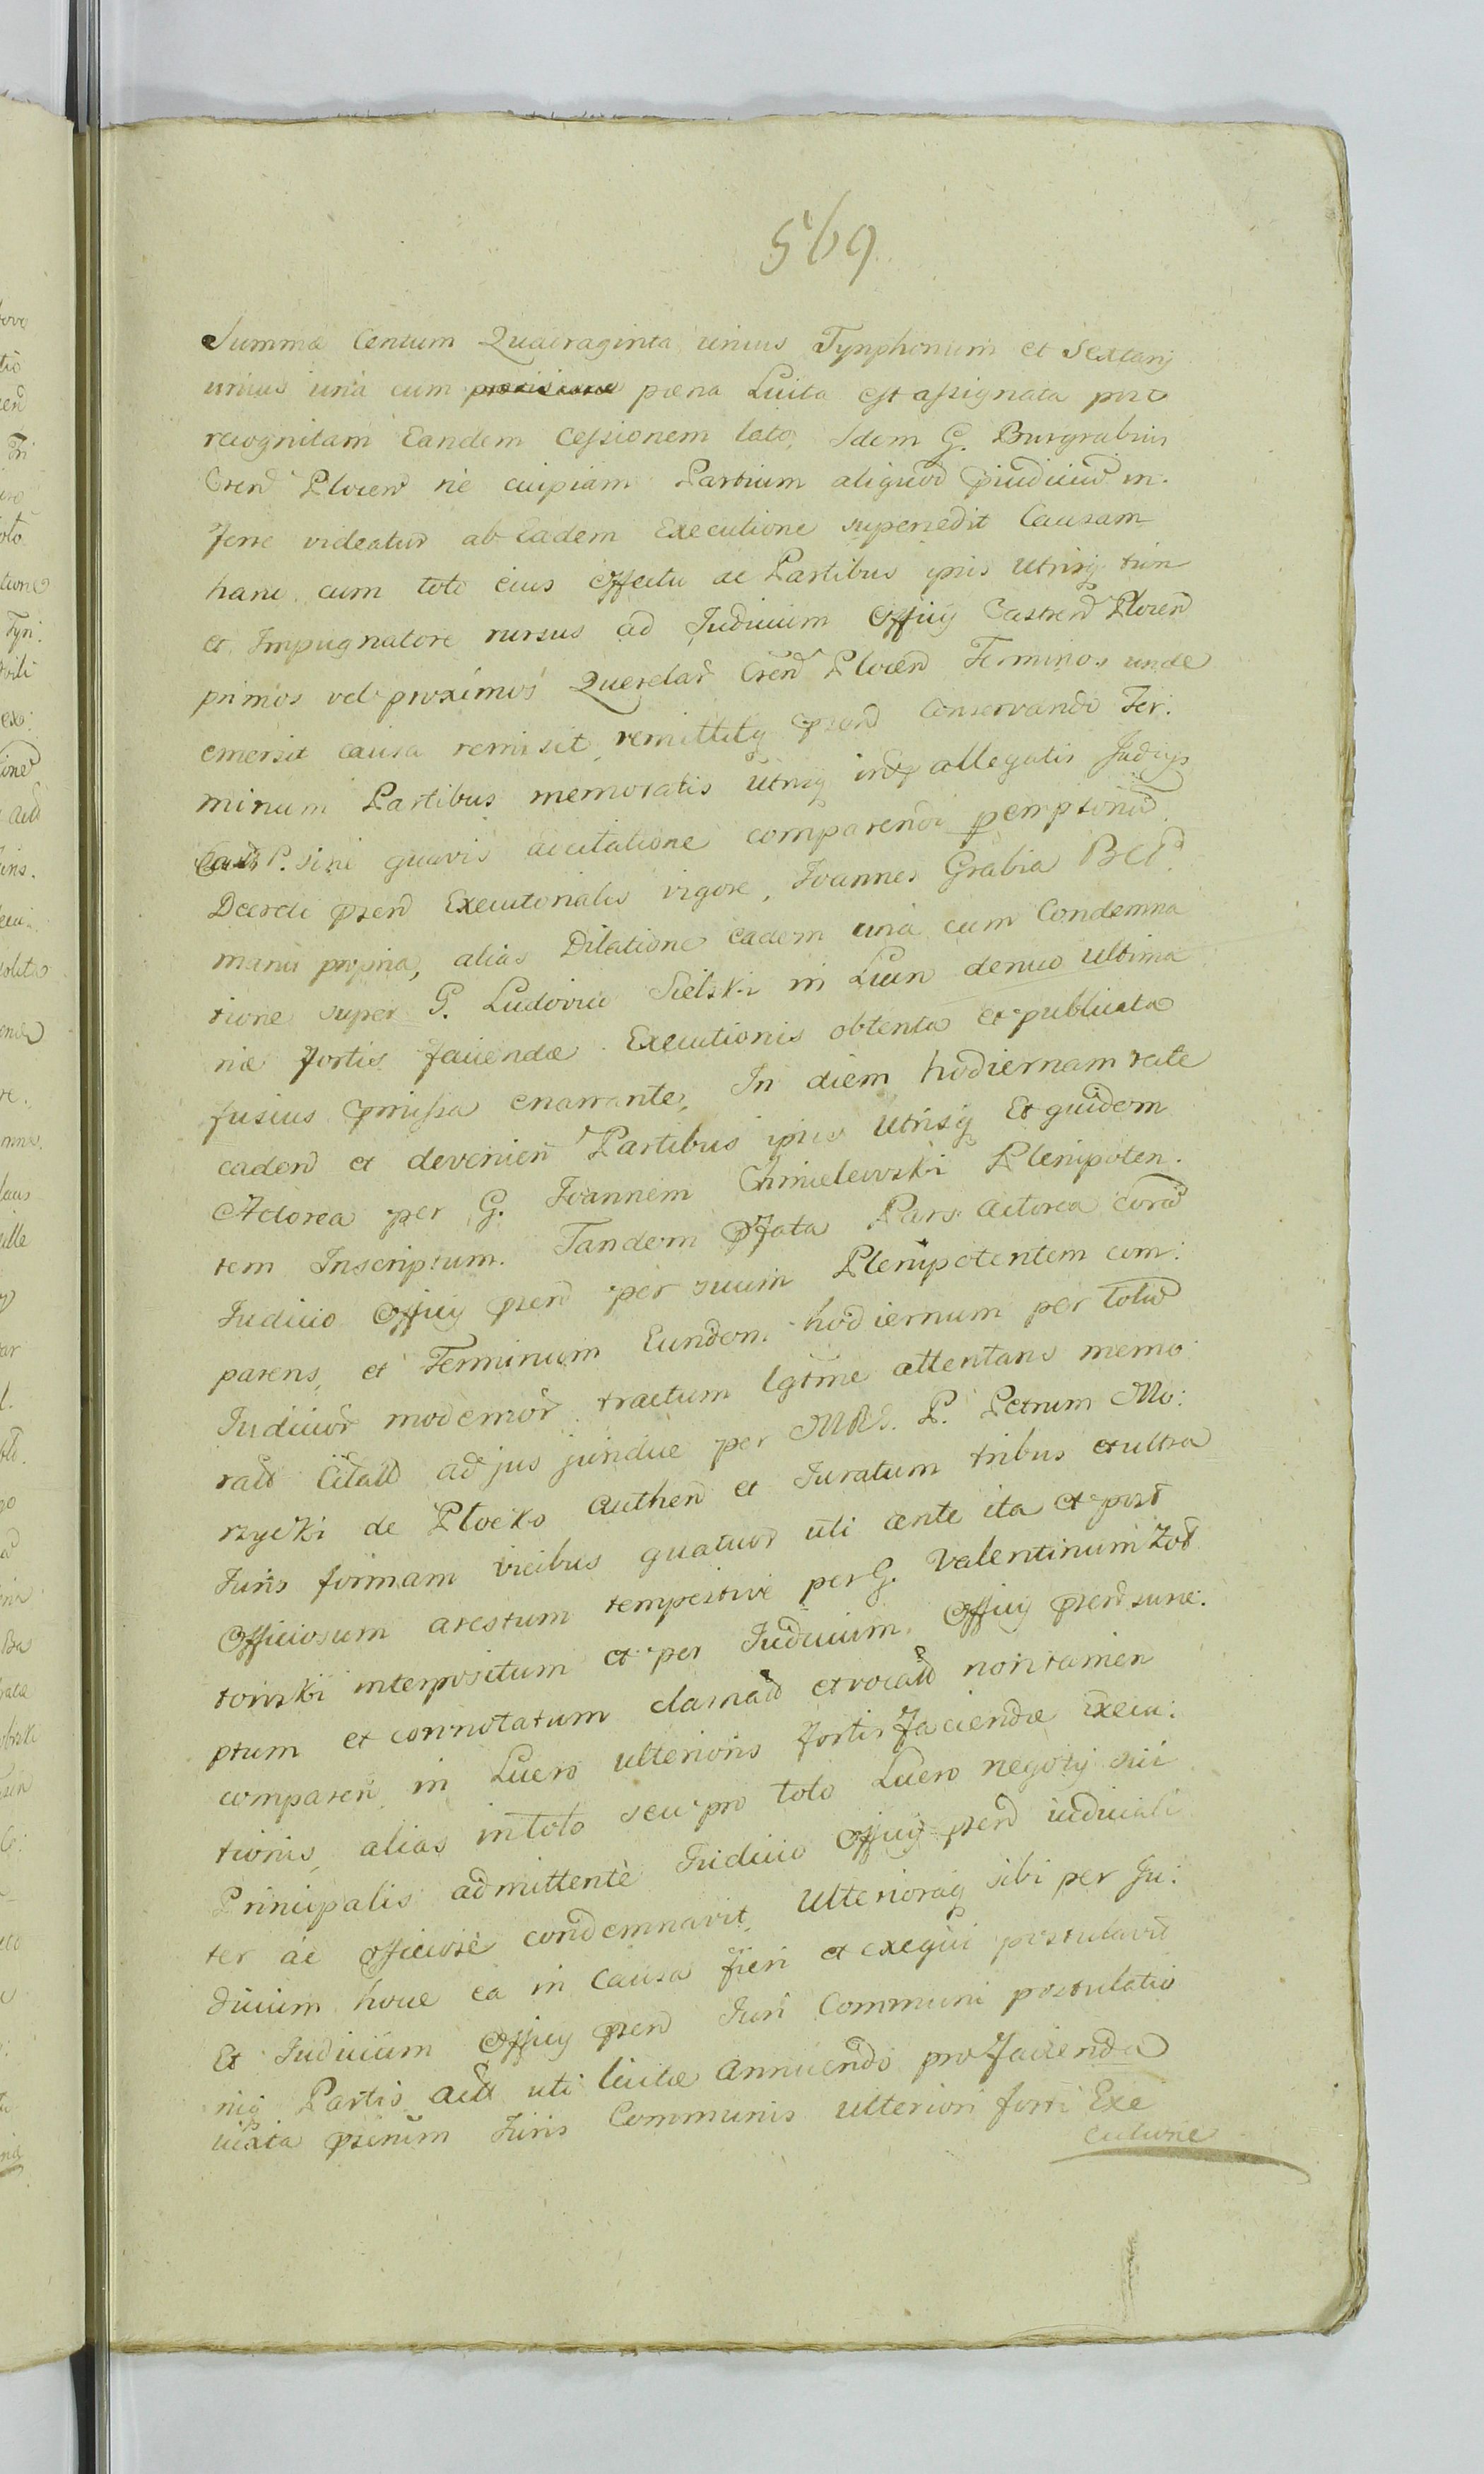 569
Summæ Centum Quadraginta unius Tynphonum et Sextarij
unius una cum pæna Luita est assignata post
recognitam Eandem Cessionem lato, Idem G. Burgrabius
Cren Plocen ne cuipiam Partium aliquod in.
ferre videatur ab eadem Executione supersedit Causam
hanc cum toto eius effectu ac Partibus ipsis Utrisq tum
et Impugnatore rursus ad Judicium Officij Castren Plocen
primos vel proximos Querelar Cren Plocen Terminos unde
emersit causa remisit, remittitq Conservandi Ter.
minum Partibus memoratis Utrisq allegatis Judicijs
P. sine quavis accitatione comparendi
Decreti Executorialis vigore, Joannes Grabia BCP.
manu propria, alias Dilatione eadem una cum Condemna
tione super G. Ludovico Sielski in Lucro denuo ultima
næ fortis faciendæ Executionis obtenta et publicata
fusius enarrante, In diem hodiernam recte
caden et devenien Partibus ipsis Utrisq Et quidem
Actorea per G. Joannem Chmielewski Plenipoten.
tem Inscriptum. Tandem Pars Actorea
Judicio Officij per suum Plenipotentem com:
parens, et Terminum Eundem hodiernum per totu
Judicior modernor tractum lgtme attentans memo
ratt Citatt ad jus juridice per MRS. P. Petrum Mo:
rzycki de Plocko Authen et Juratum tribus et ultra
Juris formam vicibus quatuor uti ante ita et post
Officiosum arestum tempestive per G. Valentinum Zol
tonski interpositum et per Judicium Officij susce:
ptum et connotatum clamatt et vocatt non tamen
comparen in Lucro ulterioris fortis faciendæ Execu:
tionis, alias in toto seu pro toto Lucro negotij sui
Principalis admittente Judicio Officij judiciali
ter ac officiose condemnavit, Ulterioraq sibi per Ju:
dicium hocce ea in Causa fieri et exequi postulavit
Et Judicium Officij Juri Communi postulatio
niq Partis Act uti licitæ Annuendo pro facienda
iuxta Juris Communis ulteriori forti Exe
cutione